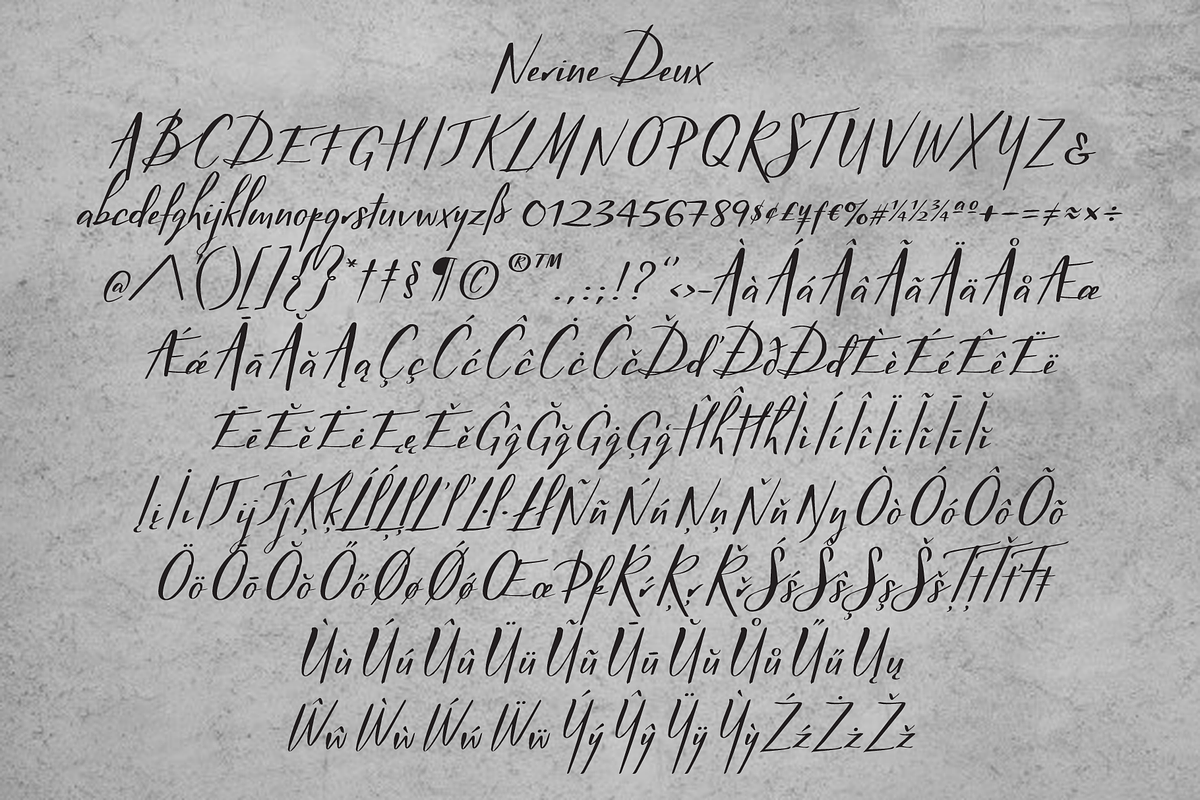 Nerine Deux
ABCDEFGHIJKLMNOPQRSTUVWXYZ&
abcdefghijklmnopqrstuvwxyzß 0123456789$¢£¥ƒ€%#¼½¾ªº+−=≠≈×÷
@/\()[]{}*†‡§¶©®™.,:;!?'"<>-ÀàÁáÂâÃãÄäÅåÆæ
ǼǽĀāĂăĄąÇçĆćĈĉĊċČčĎďĐðĐđÈèÉéÊêËë
ĒēĔĕĖėĘęĚěĜĝĞğĠġĢģĤĥĦħÌìÍíÎîÏïĨĩĪīĬĭ
ĮįİıIJijĴĵĶķĹĺĻļĽľĿŀŁłÑñŃńŅņŇňŊŋÒòÓóÔôÕõ
ÖöŌōŎŏŐőØøǾǿŒœÞþŔŕŖŗŘřŚśŜŝŞşŠšŢţŤťŦŧ
ÙùÚúÛûÜüŨũŪūŬŭŮůŰűŲų
ŴŵẀẁẂẃẄẅÝýŶŷŸÿỲỳŹźŻżŽž